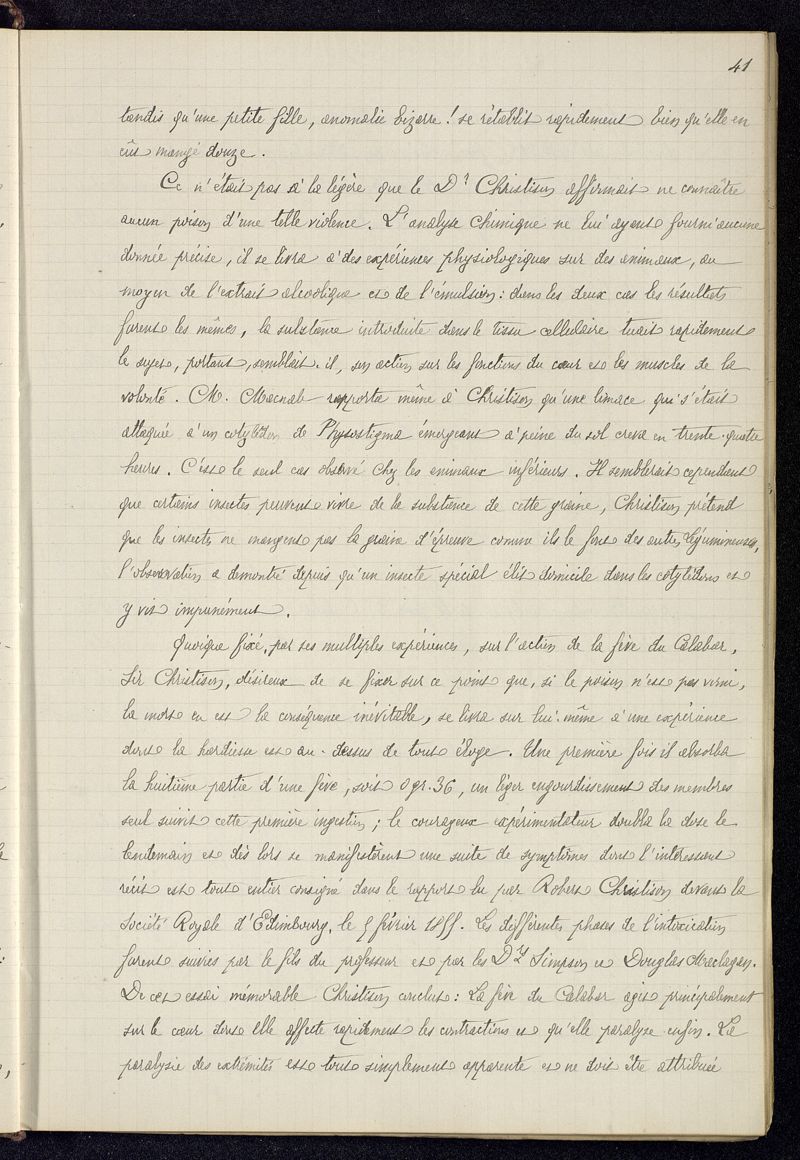 41
tandis qu'une petite fille, anomalie bizarre ! se rétablit rapidement bien qu'elle en
eût mangé douze.
Ce n'était pas à la légère que le Dr Christison affirmait ne connaître
aucun poison d'une telle violence. L'analyse chimique ne lui ayant fourni aucune
donnée précise, il se livra à des expériences physiologiques sur des animaux, au
moyen de l'extrait alcoolique et de l'émulsion : dans les deux cas les résultats
furent les mêmes, la substance introduite dans le tissu cellulaire tuait rapidement
le sujet, portant, semblait-il, son action sur les fonctions du cœur et les muscles de la
volonté. M. Macnab rapporta même à Christison qu'une limace qui s'était
attaquée à un cotylédon de Physostigma émergeant à peine du sol creva en trente-quatre
heures. C'est le seul cas observé chez les animaux inférieurs. Il semblerait cependant
que certains insectes peuvent vivre de la substance de cette graine, Christison prétend
que les insectes ne mangent pas la graine d'épreuve comme ils le font des autres Légumineuses,
l'observation a démontré depuis qu'un insecte spécial élit domicile dans les cotylédons et
y vit impunément.
Quoique fixé, par ses multiples expériences, sur l'action de la fève du Calabar,
Sir Christison, désireux de se fixer sur ce point que, si le poison n'est pas vomi,
la mort en est la conséquence inévitable, se livra sur lui-même à une expérience
dont la hardiesse est au-dessus de tout éloge. Une première fois il absorba
la huitième partie d'une fève, soit 0 gr. 36, un léger engourdissement des membres
seul suivit cette première ingestion ; le courageux expérimentateur doubla la dose le
lendemain et dès lors se manifestèrent une suite de symptômes dont l'intéressant
récit est tout entier consigné dans le rapport lu par Robert Christison devant la
Société Royale d'Edimbourg, le 5 février 1855. Les différentes phases de l'intoxication
furent suivies par le fils du professeur et par les Drs Simpson et Douglas Maclagan.
De cet essai mémorable Christison conclut : La fève du Calabar agit principalement
sur le cœur dont elle affecte rapidement les contractions et qu'elle paralyse enfin. La
paralysie des extrémités est tout simplement apparente et ne doit être attribuée